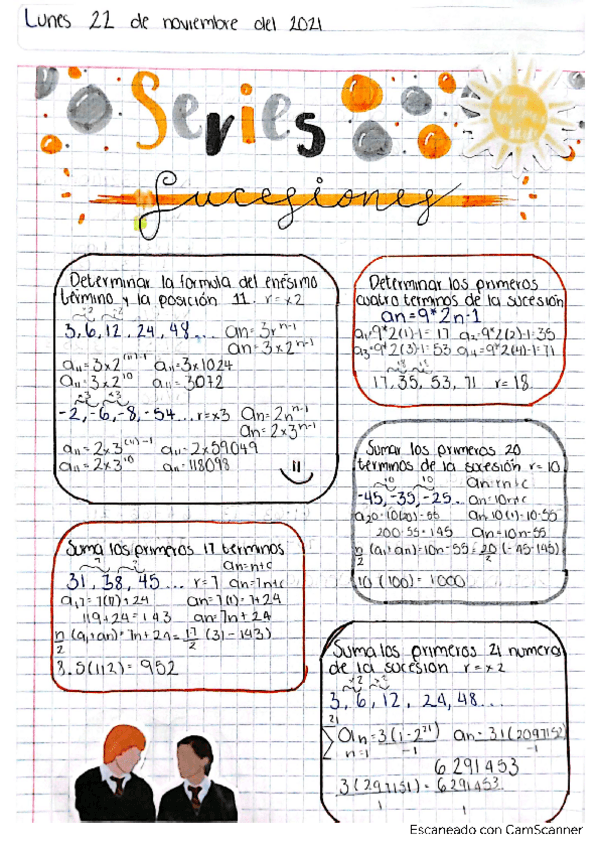 Lunes 22 de noviembre del 2021
Series
Sucesiones
Determinar la formula del enésimo
término y la posición 11. r=x2
3, 6, 12, 24, 48... an=3r^n-1
an=3x2^n-1
a11=3x2^(11)-1 a11=3x1024
a11=3x2^10 a11=3072
-2,-6,-8,-54... r=x3 an=2n^n-1
an=2x3^n-1
a11=2x3^(11)-1 a11=2x59049
a11=2x3^10 a11=118098
Determinar los primeros
cuatro terminos de la sucesión
an=9*2n-1
a1=9*2(1)-1=17 a2=9*2(2)-1=35
a3=9*2(3)-1=53 a4=9*2(4)-1=71
17, 35, 53, 71 r=18
Sumar los primeros 20
terminos de la sucesión r=10
an=rn+c
-45,-35,-25... an=10n+c
a20=10(20)-55 an=10(1)-10-55
200-55=145 an=10n-55
n/2 (a1+an)=10n-55=20/2 (-45-145)
10(100)=1000
Suma los primeros 17 terminos
an=n+c
31, 38, 45... r=7 an=7n+c
a17=7(17)+24 an=7(1)=7+24
119+24=143 an=7n+24
n/2 (a1+an)=7n+24=17/2 (31-143)
8.5(112)=952
Suma los primeros 21 numeros
de la sucesion r=x2
3, 6, 12, 24, 48...
21
∑ an=3(1-2^21) an=31(2097152)
n=1 -1 -1
6291453
3(297151)=6291453
1 1
Escaneado con CamScanner